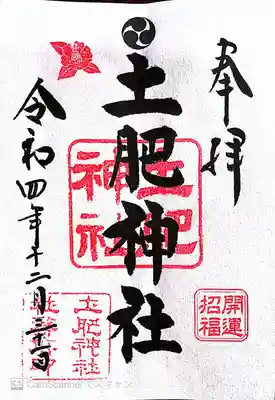 奉拝
土肥神社
土肥神社
開運招福
令和四年十二月三十日
土肥神社
CS CamScanner でスキャン